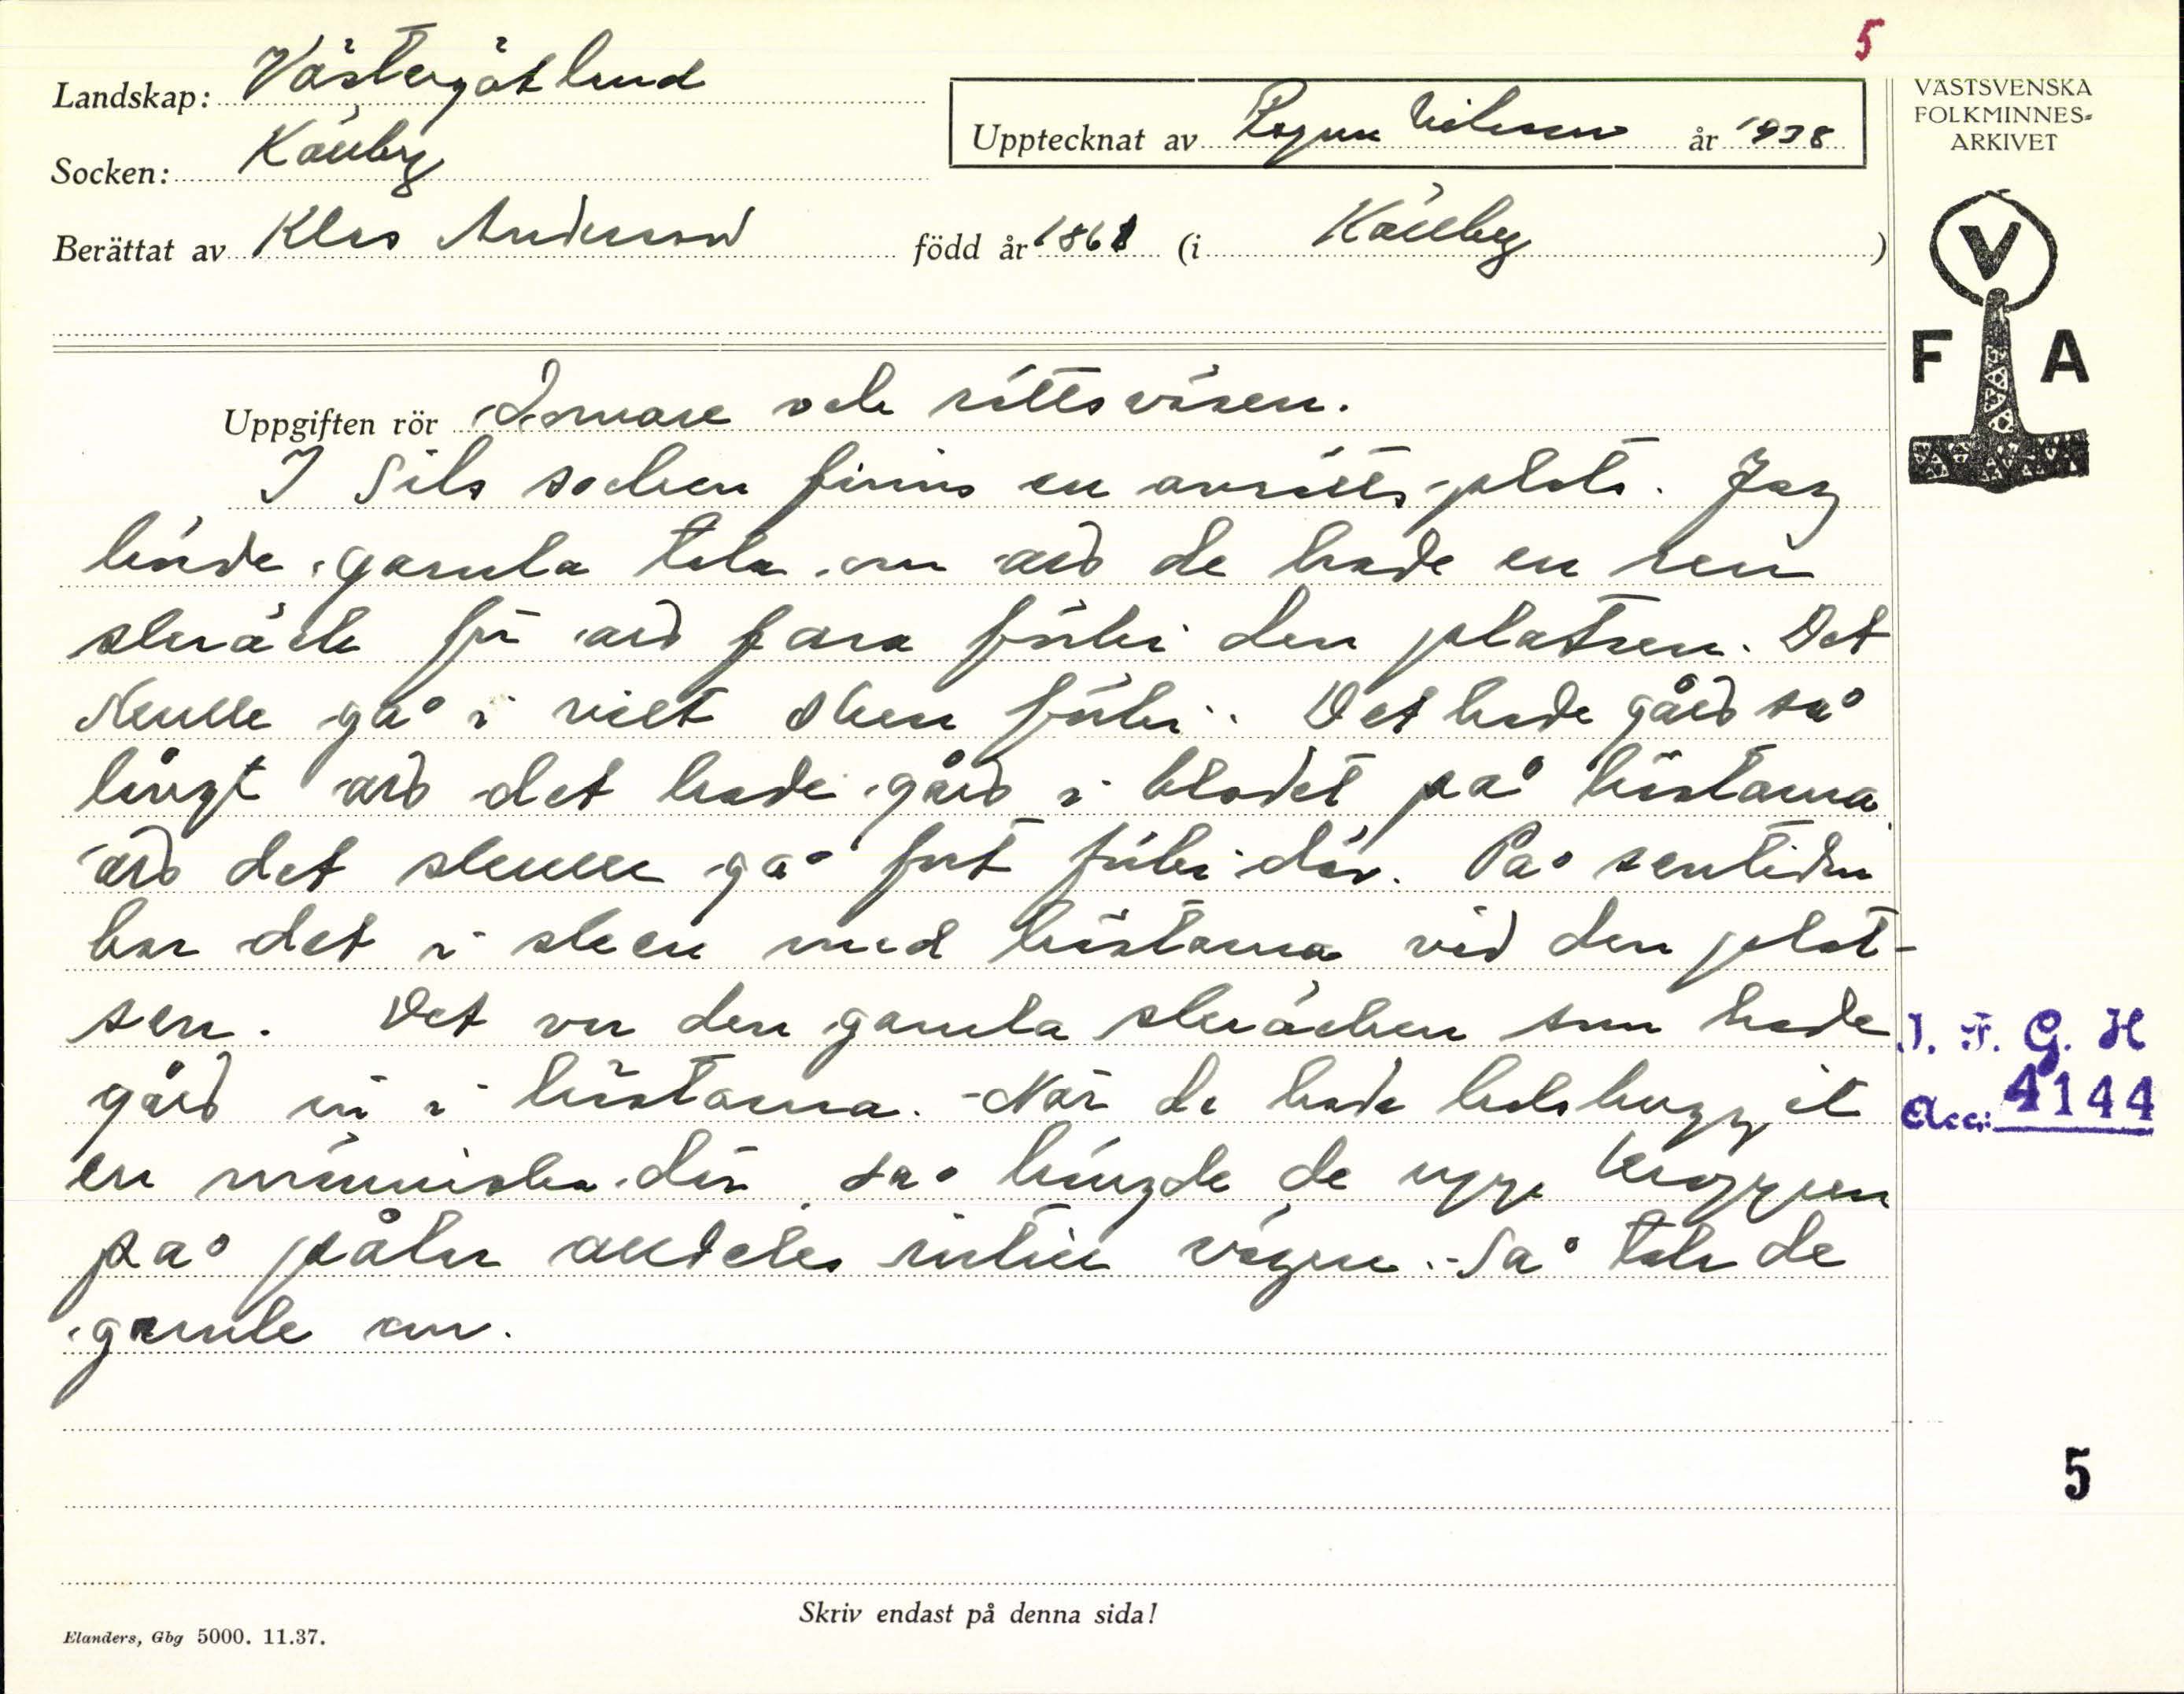 5
Landskap: Västergötland
Socken: Källby
Upptecknat av Ragnar Nilsson år 1938
VÄSTSVENSKA
FOLKMINNES-
ARKIVET
Berättat av Klas Andersson född år 1861 (i Källby)
V
F A
Uppgiften rör Domare och rättsväsen.
I Sils socken finns en avrätts-plats. Jag
hörde gamla tala om att de hade en ren
skräck för att fara förbi den platsen. Det
skulle gå i vilt sken förbi. Det hade gått så
långt att det hade gått i blodet på hästarna
att det skulle gå fort förbi där. På sentiden
har det i sken med hästarna vid den plat-
sen. Det var den gamla skräcken som hade
gått in i hästarna. - När de hade halshuggit
en människa där så hängde de upp kroppen
på pålar alldeles intill vägen. - Så tala de
gamle om.
I. F. G. H
Acc: 4144
5
Skriv endast på denna sida!
Elanders, Gbg 5000. 11.37.